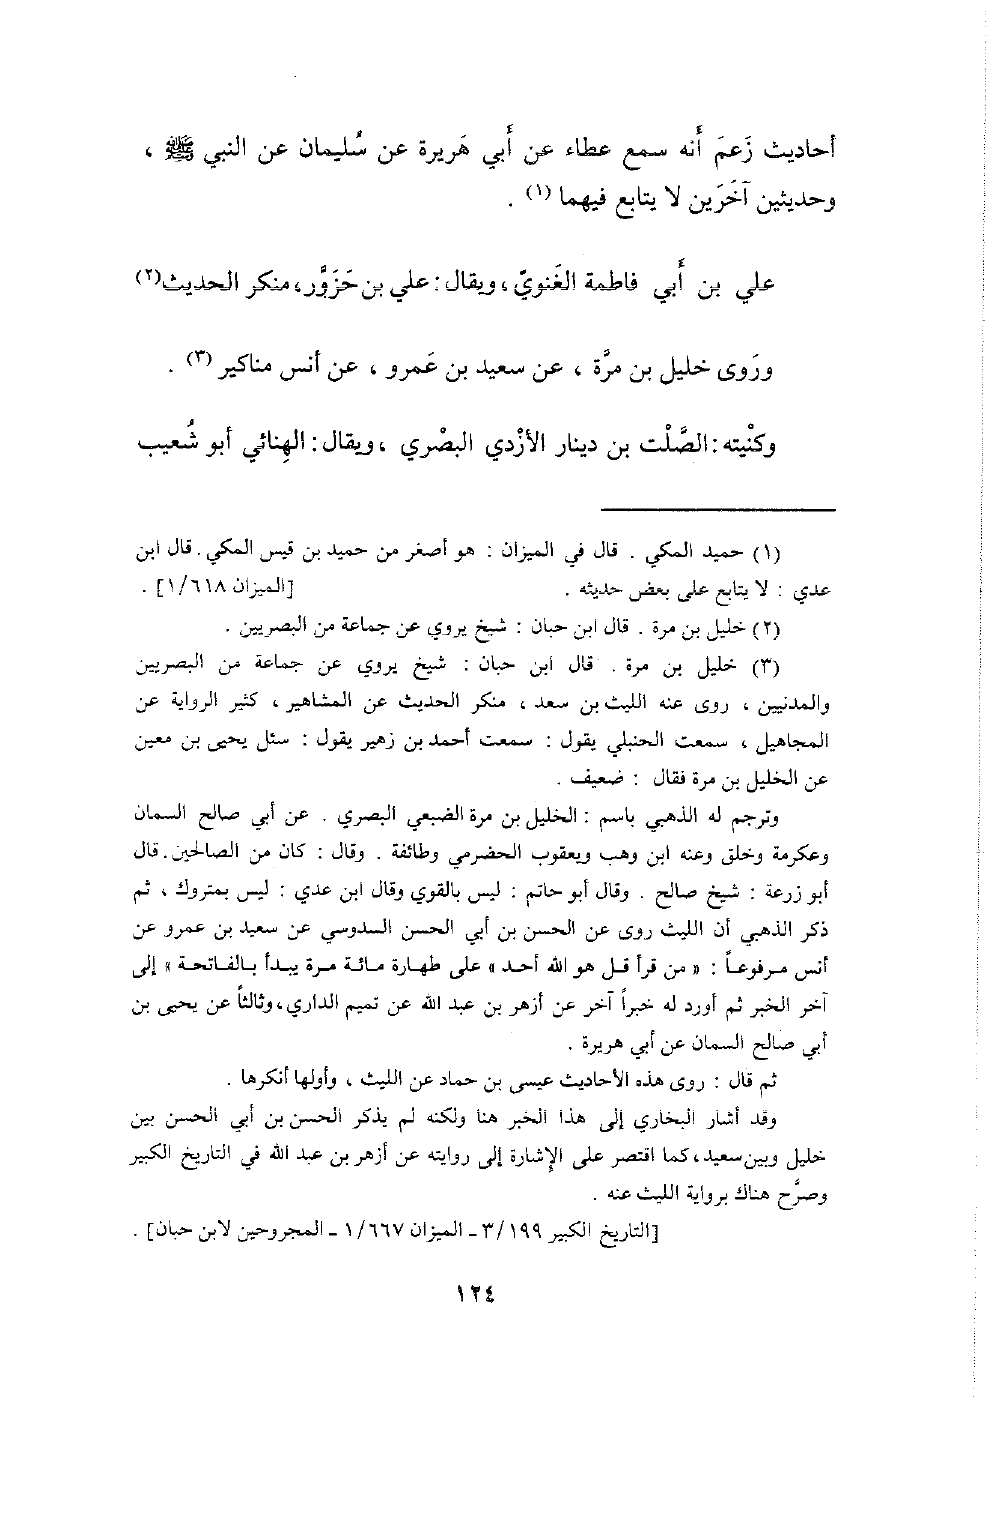 أحاديث زَعمَ أَنه سمع عطاء عن أَبي هَريرة عن سُليمان عن النبي ﷺ ،
وحديثين آخَرَين لا يتابع فيهما (١) .
علي بن أَبي فاطمة الغَنويّ ، ويقال : علي بن حَزَوَّر، منكر الحديث (٢)
ورَوى خليل بن مرَّة ، عن سعيد بن عَمرو ، عن أنس مناكير (٣) .
وكنْيته : الصَّلْت بن دينار الأزْدي البصْري ، ويقال : الهِنائي أبو شُعيب
(١) حميد المكي . قال في الميزان : هو أصغر من حميد بن قيس المكي . قال ابن
عدي : لا يتابع على بعض حديثه . [الميزان ١/٦١٨] .
(٢) خليل بن مرة . قال ابن حبان : شيخ يروي عن جماعة من البصريين .
(٣) خليل بن مرة . قال ابن حبان : شيخ يروي عن جماعة من البصريين
والمدنيين ، روى عنه الليث بن سعد ، منكر الحديث عن المشاهير ، كثير الرواية عن
المجاهيل ، سمعت الحنبلي يقول : سمعت أحمد بن زهير يقول : سئل يحيى بن معين
عن الخليل بن مرة فقال : ضعيف .
وترجم له الذهبي باسم : الخليل بن مرة الضبعي البصري . عن أبي صالح السمان
وعكرمة وخلق وعنه ابن وهب ويعقوب الحضرمي وطائفة . وقال : كان من الصالحين . قال
أبو زرعة : شيخ صالح . وقال أبو حاتم : ليس بالقوي وقال ابن عدي : ليس بمتروك ، ثم
ذكر الذهبي أن الليث روى عن الحسن بن أبي الحسن السدوسي عن سعيد بن عمرو عن
أنس مرفوعاً : « من قرأ قل هو الله أحد » على طهارة مائة مرة يبدأ بالفاتحة » إلى
آخر الخبر ثم أورد له خبراً آخر عن أزهر بن عبد الله عن تميم الداري ، وثالثاً عن يحيى بن
أبي صالح السمان عن أبي هريرة .
ثم قال : روى هذه الأحاديث عيسى بن حماد عن الليث ، وأولها أنكرها .
وقد أشار البخاري إلى هذا الخبر هنا ولكنه لم يذكر الحسن بن أبي الحسن بين
خليل وبين سعيد، كما اقتصر على الإشارة إلى روايته عن أزهر بن عبد الله في التاريخ الكبير
وصرَّح هناك برواية الليث عنه .
[التاريخ الكبير ٣/١٩٩ ـ الميزان ١/٦٦٧ ـ المجروحين لابن حبان] .
١٢٤